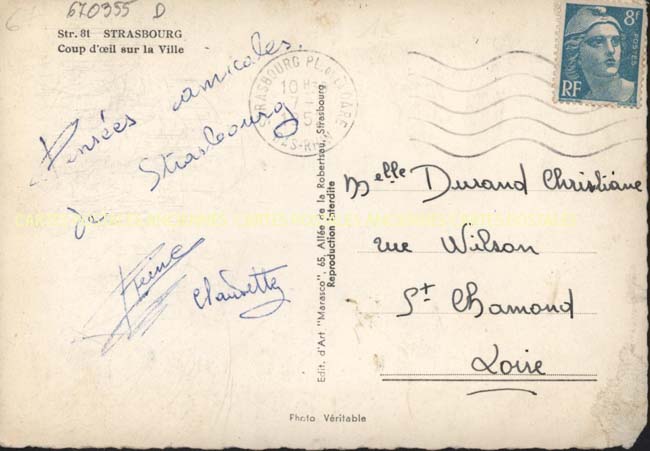 670355 D
Str. 81 STRASBOURG
Coup d'œil sur la Ville
Pensées amicales.
de Strasbourg
Claudette
STRASBOURG PL. DE LA GARE
10 H
BAS-RHIN
8F
POSTES
RF
Edit. d'Art "Marasco", 65, Allée de la Robertsau, Strasbourg
Reproduction interdite
Melle Durand Christiane
rue Wilson
St Chamond
Loire
Photo Véritable
CARTES POSTALES ANCIENNES CARTES POSTALES ANCIENNES CARTES POSTALES